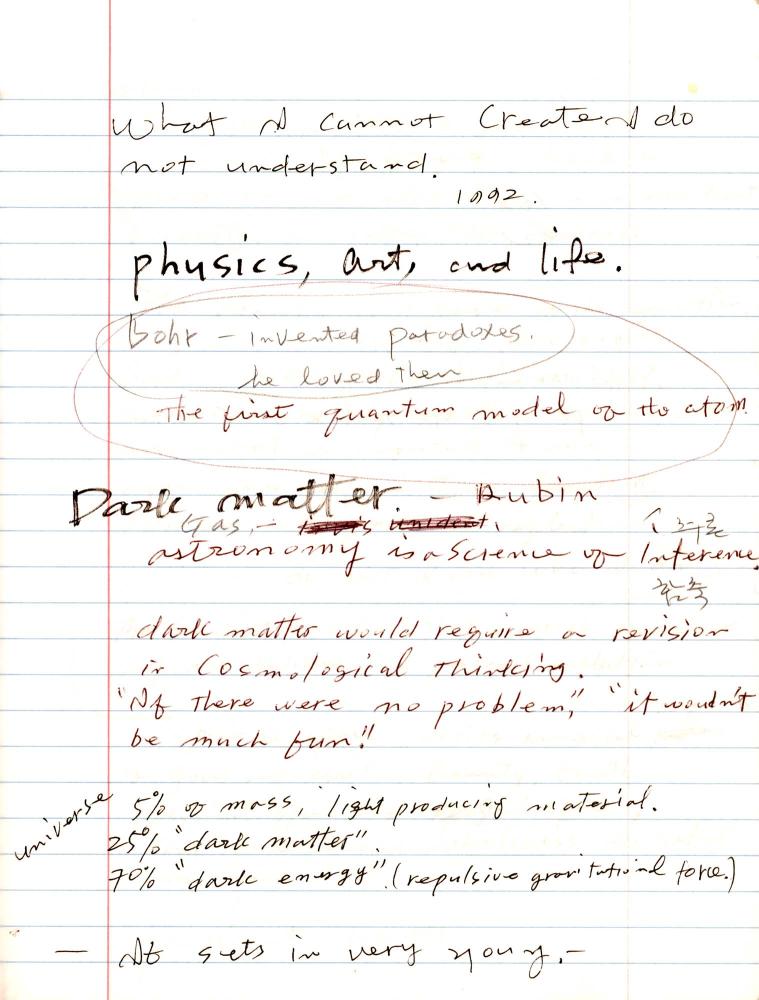 What I cannot Create I do
not understand.
1992.
physics, art, and life.
Bohr – invented paradoxes.
he loved them
The first quantum model of the atom.
Dark matter. – Rubin
Gas, –
astronomy is a Science of Inference.
함축
dark matter would require a revision
in Cosmological Thinking.
"If There were no problem," "it wouldn't
be much fun!"
universe
5% of mass, light producing material.
25% "dark matter".
70% "dark energy". (repulsive gravitational force.)
— It sets in very young. –